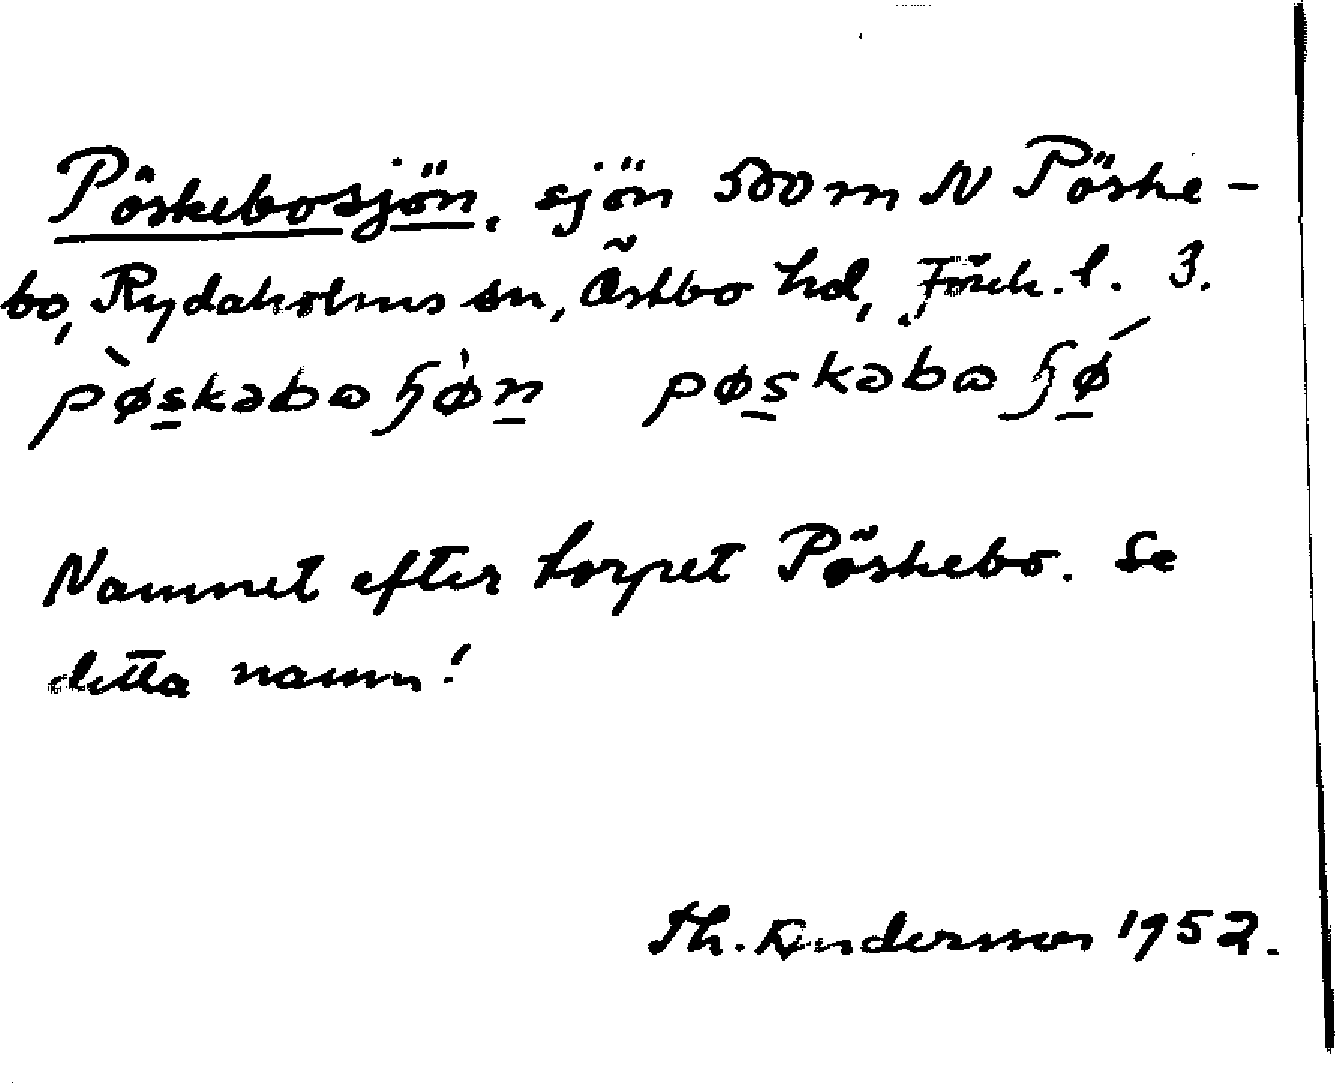 Pöskebosjön, sjön 500 m N Pöske-
bo, Rydaholms sn, Östbo hd, Jönk. l. 3.
pø̀s̲kəbɷɧø̀n̲ pøs̲kəbɷɧǿ̲
Namnet efter torpet Pöskebo. Se
detta namn!
Th. Andersson 1952.